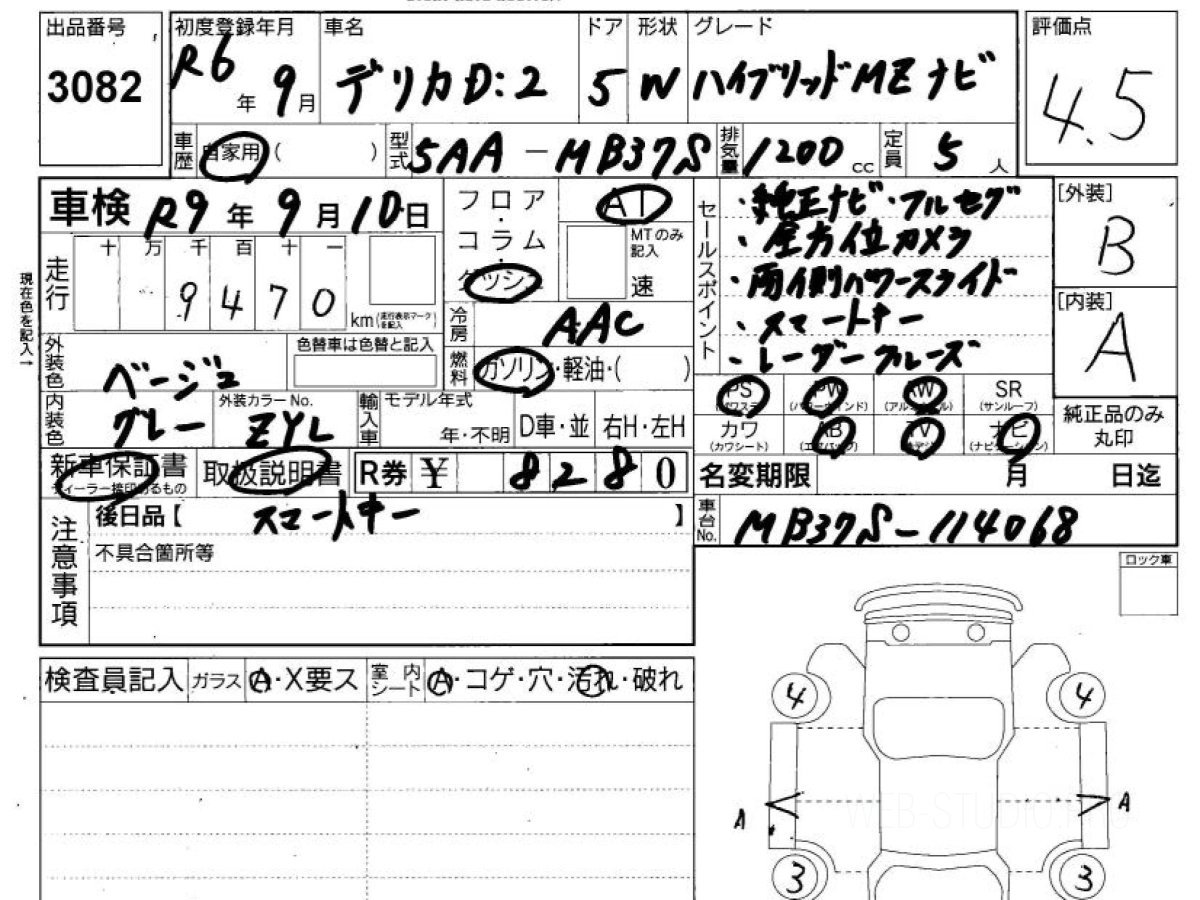 出品番号 初度登録年月 車名 ドア 形状 グレード 評価点
3082 R6年 9月 デリカD:2 5 W ハイブリッドMZナビ 4.5
車歴 自家用 ( ) 型式 5AA-MB37S 排気量 1200 cc 定員 5 人
車検 R9年 9月 10日 フロア・コラム・ダッシュ AT
MTのみ記入 速
セールスポイント
・純正ナビ・フルセグ
・全方位カメラ
・両側パワースライド
・スマートキー
・レーダークルーズ
[外装]
B
[内装]
A
現在色を記入→
走行 十 万 千 百 十 一
9 4 7 0 km (走行表示マークを記入)
冷房 AAC
外装色 ベージュ 色替車は色替と記入 燃料 ガソリン・軽油・( )
内装色 グレー 外装カラーNo. ZYL 輸入車 モデル年式 年・不明 D車・並 右H・左H
PS (パワステ) PW (パワーウインド) AW (アルミホイル) SR (サンルーフ)
カワ (カワシート) AB (エアバッグ) TV ナビ (ナビゲーション)
純正品のみ
丸印
新車保証書 取扱説明書 R券 ¥ 8 2 8 0 名変期限 月 日迄
ディーラー捺印のあるもの
車台No. MB37S-114068
注意事項 後日品【 スマートキー 】
不具合箇所等
ロック車
検査員記入 ガラス A・X要ス 室内シート A・コゲ・穴・汚れ・破れ
4 4
A A
WEB-STUDIO
3 3